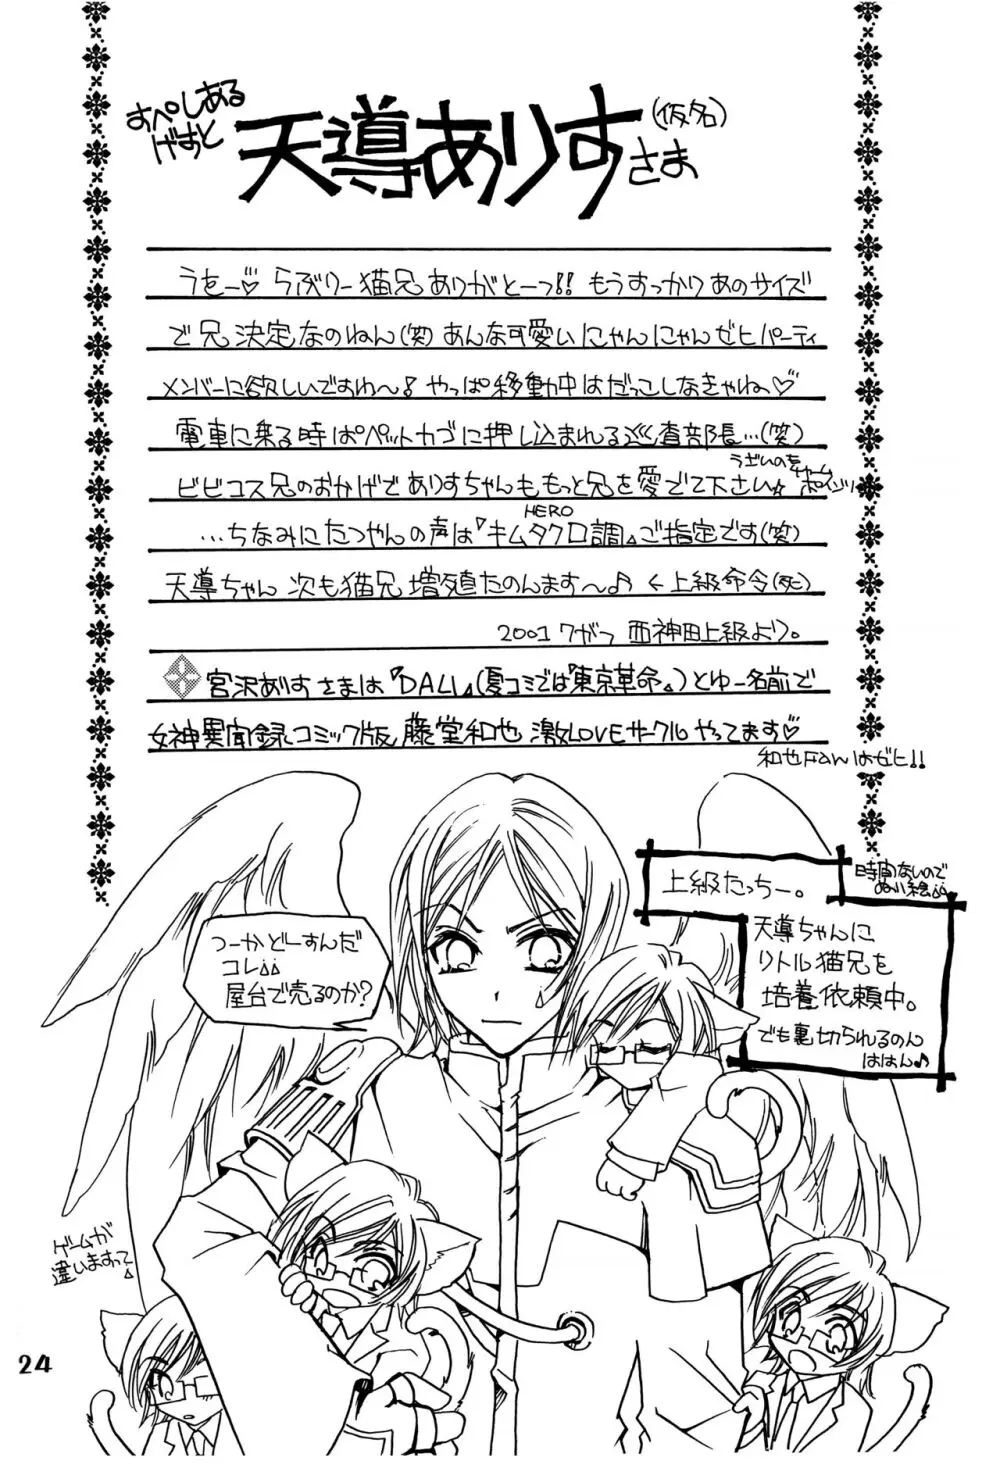 すぺしある
げすと
天導ありす(仮名)
さま
うをー♡ らぶりー猫兄ありがとーっ!! もうすっかりあのサイズ
で兄決定なのねん(笑) あんな可愛いにゃんにゃんゼヒパーティ
メンバーに欲しいですわ〜! やっぱ移動中はだっこしなきゃねっ♡
電車に乗る時はペットカゴに押し込まれる巡査部長…(笑)
ビビコス兄のおかげでありすちゃんももっと兄を愛でて下さい☆
…ちなみにたつやんの声は『キムタクロ調』ご指定です(笑)
HERO
天導ちゃん 次も猫兄増殖たのんます〜♪ ←上級命令(死)
2001 7がつ 西神田上級より。
宮沢ありすさまは『DALI』(夏コミでは『東京革命』)とゆー名前で
女神異聞録コミック版 藤堂和也 激LOVEサークルやってます♡
和也Fanはゼヒ!!
時間ないので
ぬい絵
上級たっちー。
天導ちゃんに
リトル猫兄を
培養依頼中。
でも裏切られるのん
ははん♪
つーかどーすんだ
コレ
屋台で売るのか?
ゲームが
違いますって
24